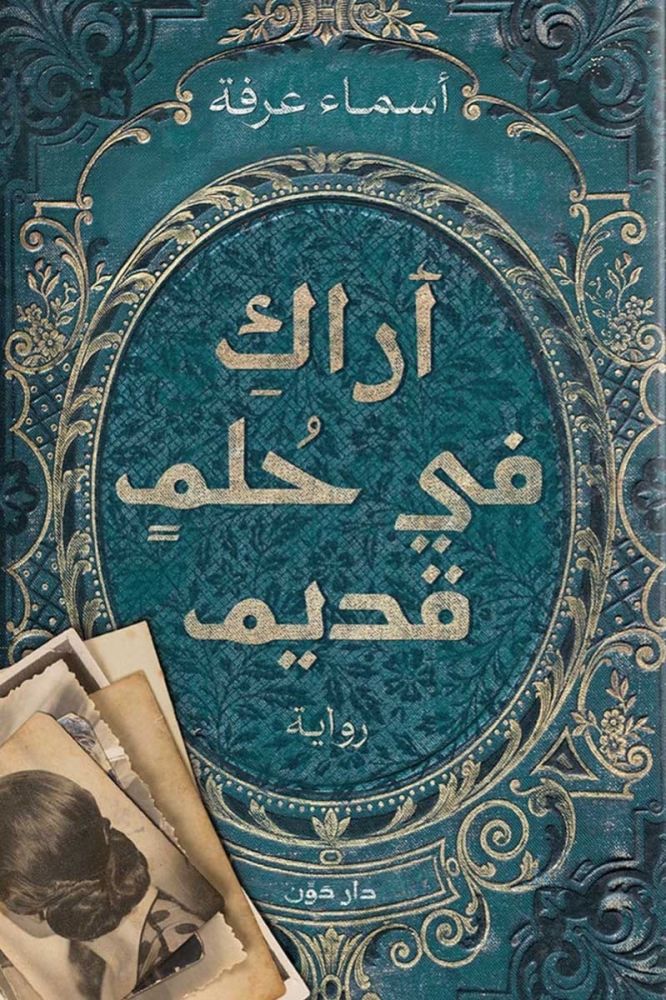 أسماء عرفة
أراكِ
في حُلمٍ
قديم
رواية
دار دوّن